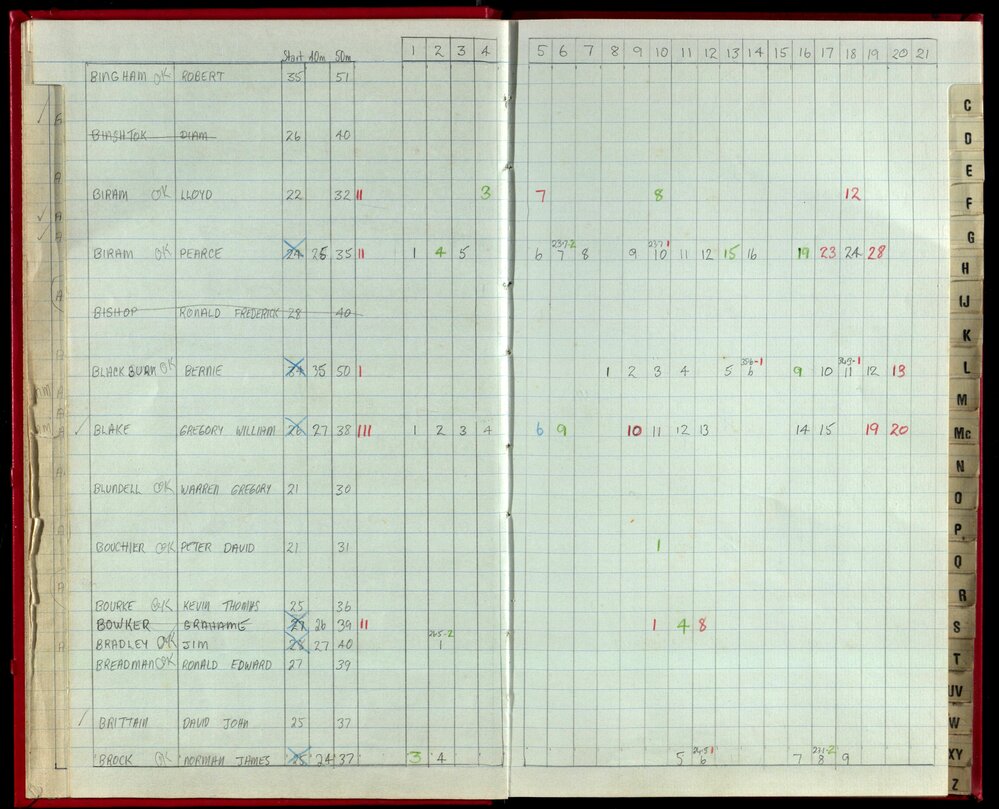 Start 40m 50m 1 2 3 4 5 6 7 8 9 10 11 12 13 14 15 16 17 18 19 20 21
BINGHAM OK ROBERT 35 51
BINSHTOK DIAM 26 40
BIRAM OK LLOYD 22 32 II 3 7 8 12
BIRAM OK PEARCE 24 25 35 II 1 4 5 6 237-2 7 8 9 237-1 10 11 12 15 16 19 23 24 28
BISHOP RONALD FREDERICK 28 40
BLACKBURN OK BERNIE 34 35 50 I 1 2 3 4 5 356-1 6 9 10 11 12 13
BLAKE GREGORY WILLIAM 26 27 38 III 1 2 3 4 6 9 10 11 12 13 14 15 19 20
BLUNDELL OK WARREN GREGORY 21 30
BOUCHIER OK PETER DAVID 21 31 1
BOURKE OK KEVIN THOMAS 25 36
BOWKER GRAHAME 27 26 39 II 1 4 8
BRADLEY OK JIM 28 27 40 265-2 1
BREADMAN OK RONALD EDWARD 27 39
BRITTAIN DAVID JOHN 25 37
BROCK OK NORMAN JAMES 25 24 37 3 4 5 245-1 6 7 231-2 8 9
C
D
E
F
G
H
IJ
K
L
M
Mc
N
O
P
Q
R
S
T
UV
W
XY
Z